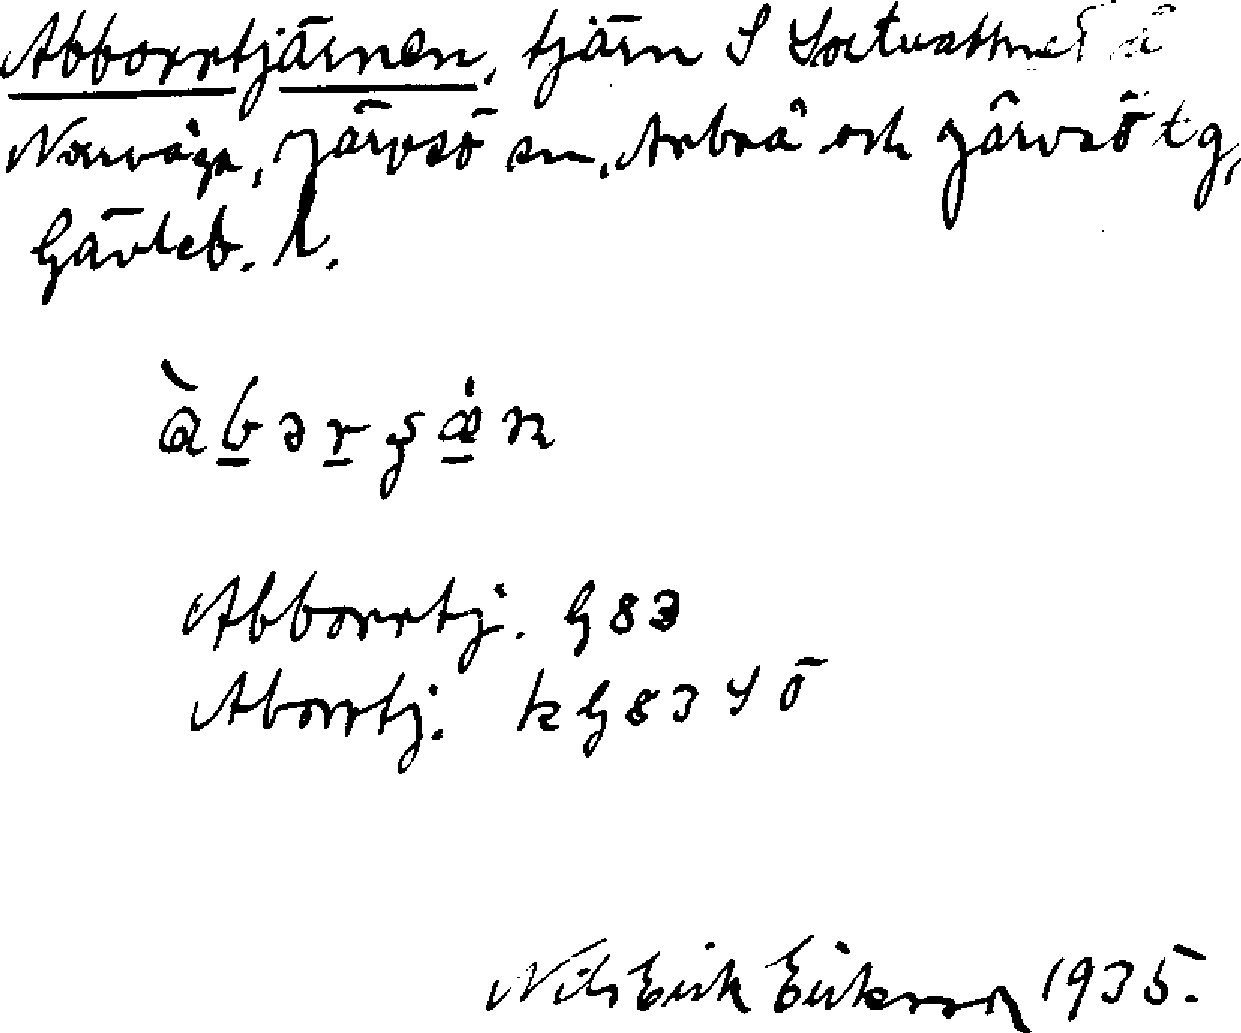 Abborrtjärnen, tjärn S Sörtvattnet å
Norrvåga, Järvsö sn, Arbrå och Järvsö tg,
Gävleb. l.
àbərʂæ̀n
Abborrtj. G 83
Aborrtj. k G 83 S Ö
Nils Erik Eriksson 1935.